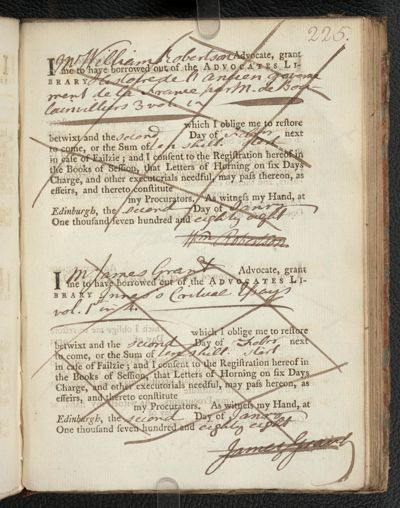 225.
I Mr William Robertson Advocate, grant
me to have borrowed out of the ADVOCATES LI-
BRARY Histoire de l'Ancien gouverne
ment de la France par M. de Bou-
lainvilliers 3 vol. in
which I oblige me to reſtore
betwixt and the second Day of Febr next
to come, or the Sum of ten shill. Sterl
in caſe of Failzie; and I conſent to the Regiſtration hereof in
the Books of Seſſion, that Letters of Horning on ſix Days
Charge, and other executorials needful, may paſs thereon, as
effeirs, and thereto conſtitute
my Procurators. As witneſs my Hand, at
Edinburgh, the second Day of Janry
One thouſand ſeven hundred and eighty eight
Wm. Robertson
I Mr James Grant Advocate, grant
me to have borrowed out of the ADVOCATES LI-
BRARY Innes's Critical Essays
vol. 1st in
which I oblige me to reſtore
betwixt and the second Day of Febr next
to come, or the Sum of ten shill. Sterl
in caſe of Failzie; and I conſent to the Regiſtration hereof in
the Books of Seſſion, that Letters of Horning on ſix Days
Charge, and other executorials needful, may paſs hereon, as
effeirs, and thereto conſtitute
my Procurators. As witneſs my Hand, at
Edinburgh, the second Day of Janry
One thouſand ſeven hundred and eighty eight
James Grant